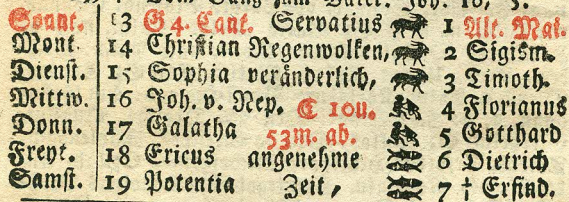 Sonnt. 13 G 4. Cant. Servatius 1 Alt. Mai.
Mont. 14 Christian Regenwolken, 2 Sigism.
Dienst. 15 Sophia veränderlich, 3 Timoth.
Mittw. 16 Joh. v. Nep. ☾ 10u. 4 Florianus
Donn. 17 Galatha 53m. ab. 5 Gotthard
Freyt. 18 Ericus angenehme 6 Dietrich
Samst. 19 Potentia Zeit, 7 † Erfind.